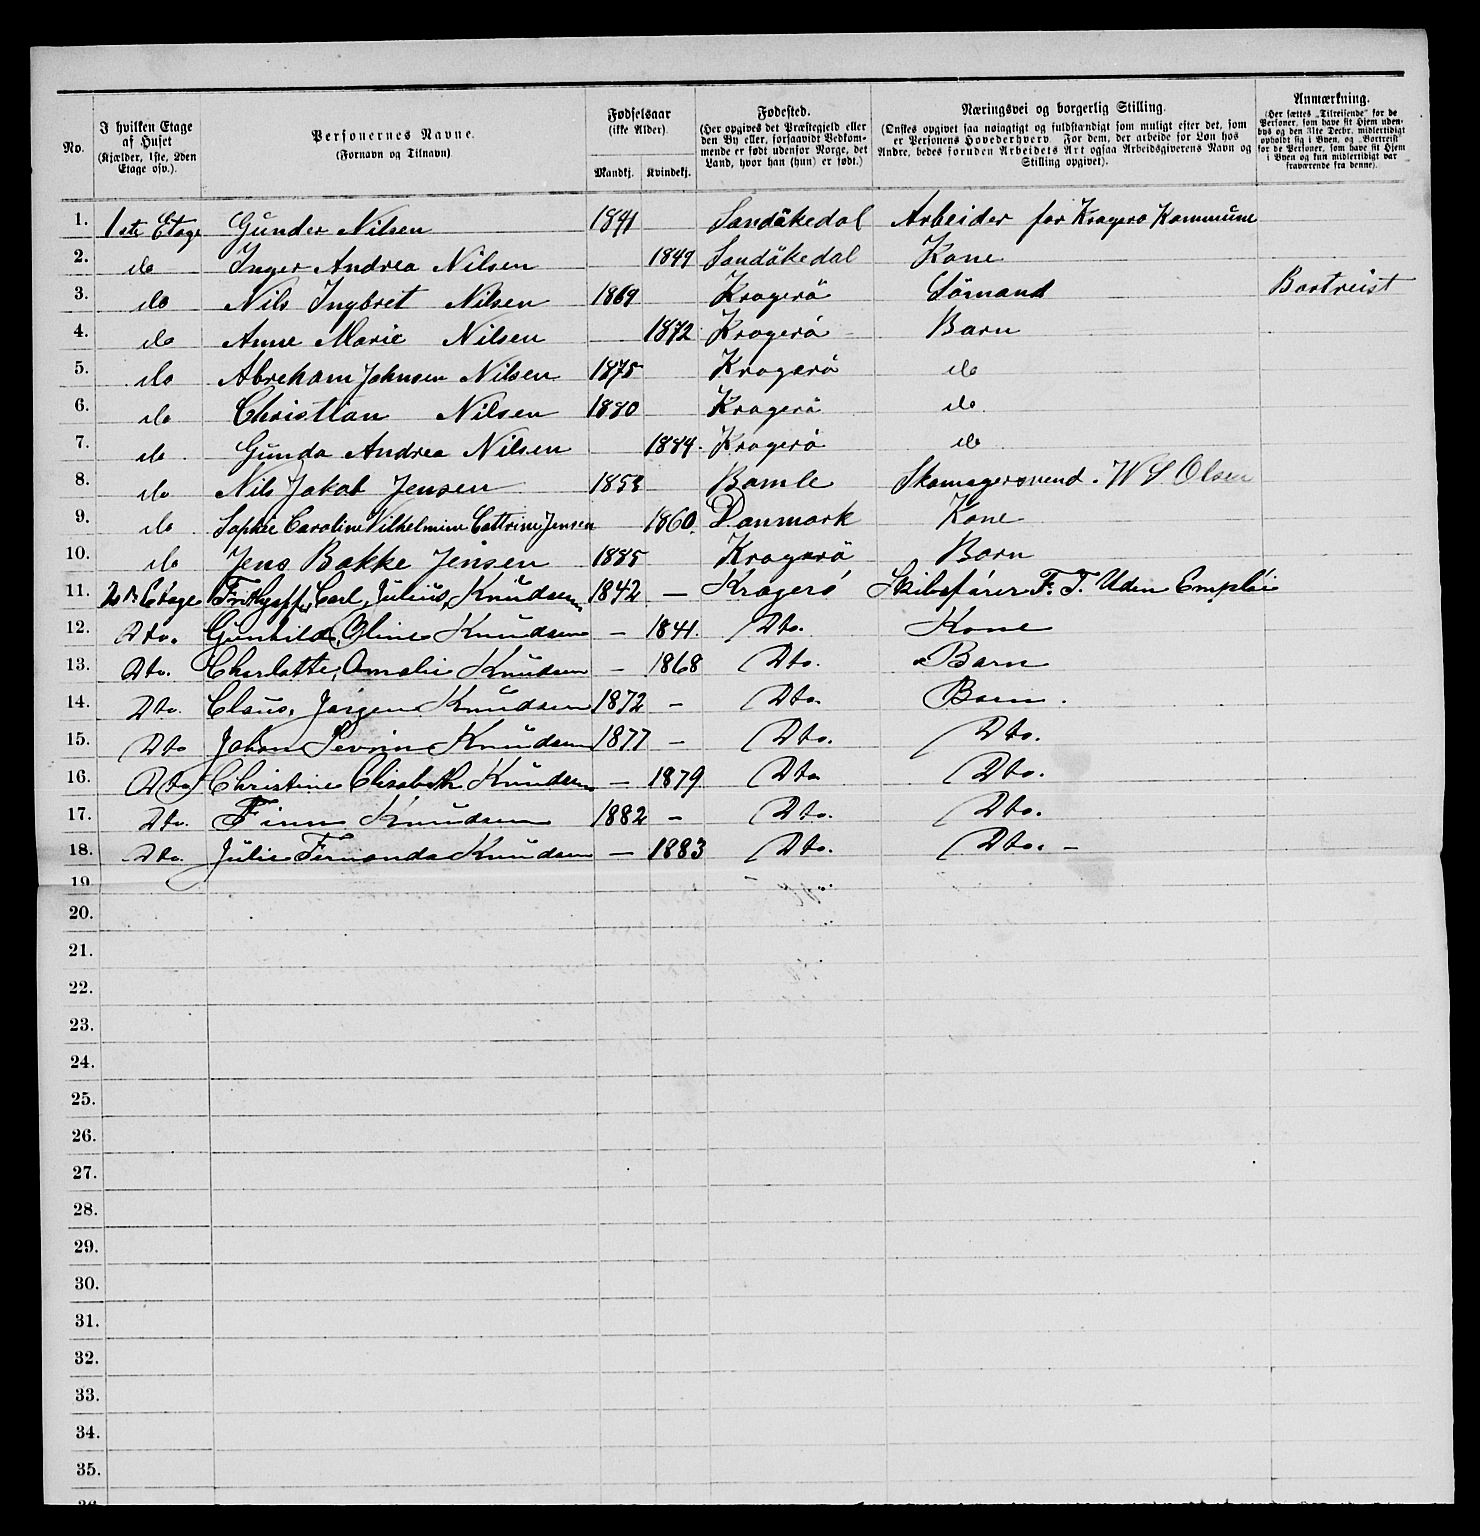 No. | I hvilken Etage af Huset (Kjælder, 1ste, 2den Etage osv.). | Personernes Navne. (Fornavn og Tilnavn) | Fødselsaar (ikke Alder). Mandkj. | Kvindekj. | Fødested. (Her opgives det Præstegjeld eller den By eller, forsaavidt Vedkommende er født udenfor Norge, det Land, hvor han (hun) er født.) | Næringsvei og borgerlig Stilling. (Ønskes opgivet saa nøiagtigt og fuldstændigt som muligt efter det, som er Personens Hovederhverv. For dem, der arbeide for Løn hos Andre, bedes foruden Arbeidets Art ogsaa Arbeidsgiverens Navn og Stilling opgivet). | Anmærkning. (Her sættes „Tilreisende" for de Personer, som have sit Hjem udenbys og den 31te Decbr. midlertidigt opholdt sig i Byen, og „Bortreist" for de Personer, som have sit Hjem i Byen og kun midlertidigt var fraværende fra denne).
1. 1ste Etage Gunder Nilsen 1841 Sandökedal Arbeider for Kragerø Kommune
2. do Inger Andrea Nilsen 1849 Sandökedal Kone
3. do Nils Ingbret Nilsen 1869 Kragerö Sömand Bortreist
4. do Anne Marie Nilsen 1872 Kragerö Barn
5. do Abreham Johnsen Nilsen 1875 Kragerö do
6. do Christian Nilsen 1880 Kragerö do
7. do Gunda Andrea Nilsen 1884. Kragerö do
8. do Nils Jakob Jensen 1853 Bamle Skomagersvend. W S Olsen
9. do Sophie Caroline Vilhelmine Cattrine Jensen 1860. Danmark Kone
10. do Jens Bakke Jensen 1885 Kragerö Barn
11. 2den Etage Frithjoff, Carl, Julius, Knudsen 1842 — Kragerö Skibsfører F. T. Uden Emploi
12. Dto. Gunhild, Oline Knudsen — 1841. Dto. Kone
13. Dto. Charlotte, Amalie Knudsen — 1868 Dto. Barn
14. Dto. Claus, Jørgen Knudsen 1872 — Dto. Barn.
15. Dto Johan Sevrin Knudsen 1877 — Dto. Dto.
16. Dto Christine Elisabeth Knudsen — 1879 Dto Dto.
17. Dto. Finn Knudsen 1882 — Dto. Dto.
18. Dto. Julie Fernanda Knudsen — 1883 Dto. Dto. —
19.
20.
21.
22.
23.
24.
25.
26.
27.
28.
29.
30.
31.
32.
33.
34.
35.